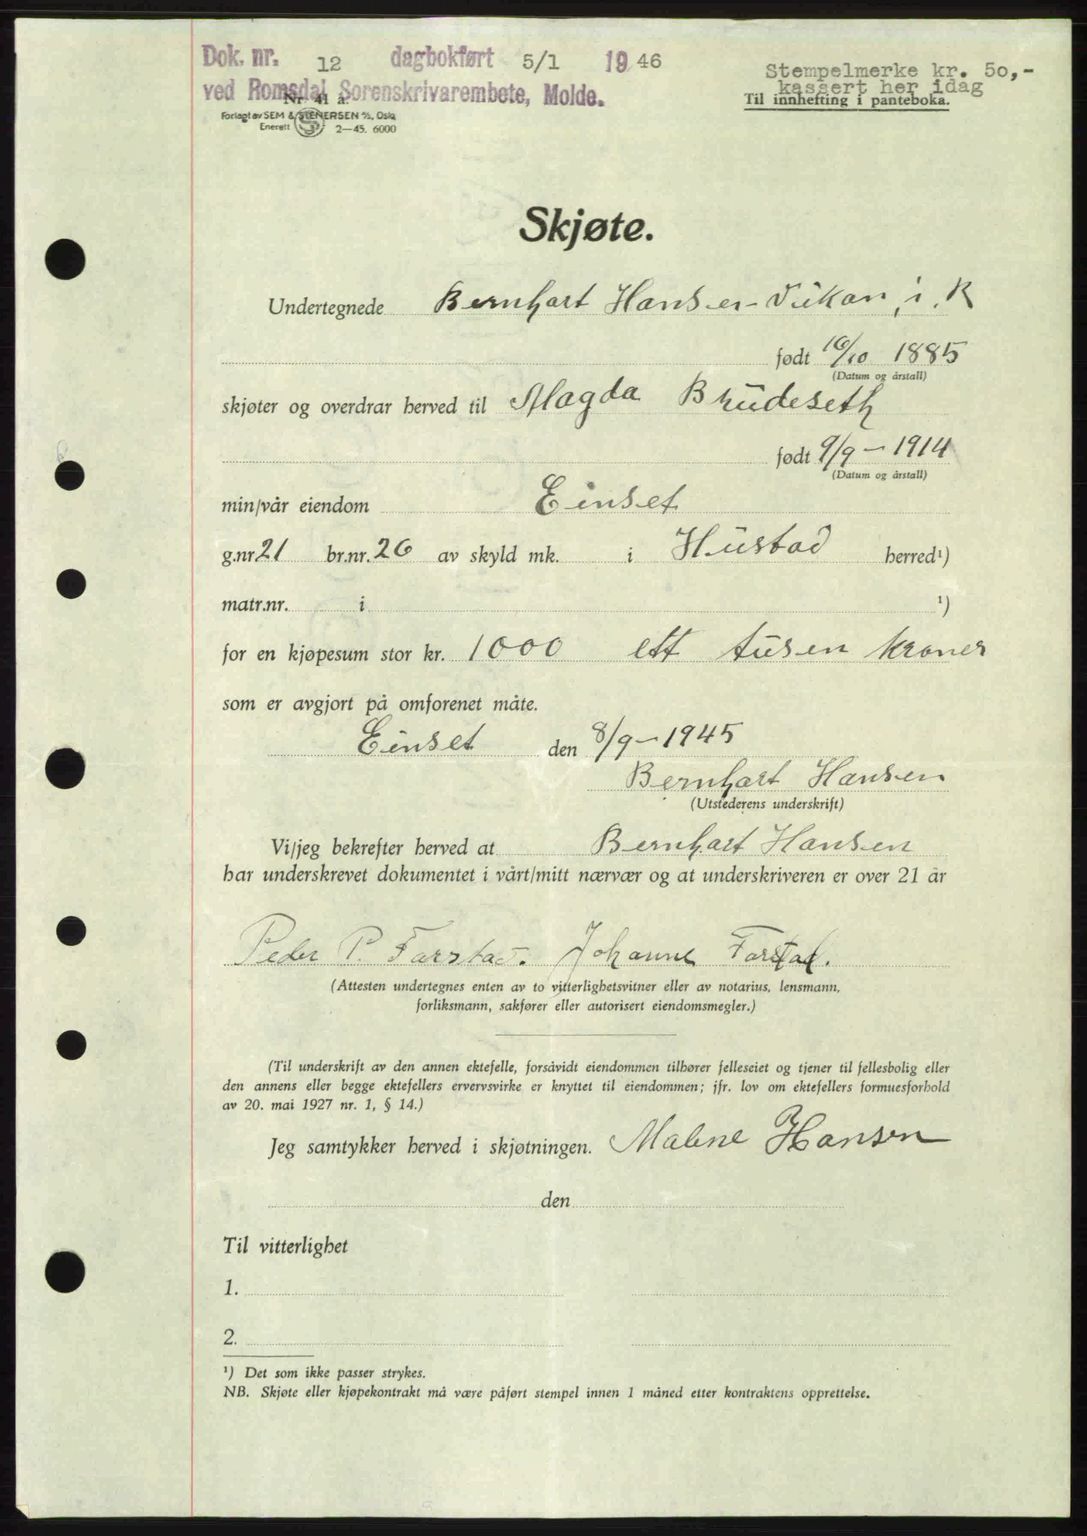 Dok. nr. 12 dagbokført 5/1 1946
ved Romsdal Sorenskrivarembete, Molde.
Stempelmerke kr. 50,-
kassert her idag
Nr 41 a.
Til innhefting i panteboka.
Forlagt av SEM & STENERSEN A/S, Oslo
Enerett 2—45. 6000
Skjøte.
Undertegnede Bernhart Hansen-Vikan, i. R
født 16/10 1885
(Datum og årstall)
skjøter og overdrar herved til Magda Brüdeseth
født 9/9 - 1914
(Datum og årstall)
min/vår eiendom Einset
g.nr. 21 br.nr. 26 av skyld mk. i Hüstad herred¹)
matr.nr. i ¹)
for en kjøpesum stor kr. 1000 ett tüsen kroner
som er avgjort på omforenet måte.
Einset den 8/9-1945
Bernhart Hansen
(Utstederens underskrift)
Vi/jeg bekrefter herved at Bernhart Hansen
har underskrevet dokumentet i vårt/mitt nærvær og at underskriveren er over 21 år
Peder P. Farstad. Johanne Farstad.
(Attesten undertegnes enten av to vitterlighetsvitner eller av notarius, lensmann,
forliksmann, sakfører eller autorisert eiendomsmegler.)
(Til underskrift av den annen ektefelle, forsåvidt eiendommen tilhører felleseiet og tjener til fellesbolig eller
den annens eller begge ektefellers ervervsvirke er knyttet til eiendommen; jfr. lov om ektefellers formuesforhold
av 20. mai 1927 nr. 1, § 14.)
Jeg samtykker herved i skjøtningen. Malene Hansen
den
Til vitterlighet
1.
2.
¹) Det som ikke passer strykes.
NB. Skjøte eller kjøpekontrakt må være påført stempel innen 1 måned etter kontraktens opprettelse.